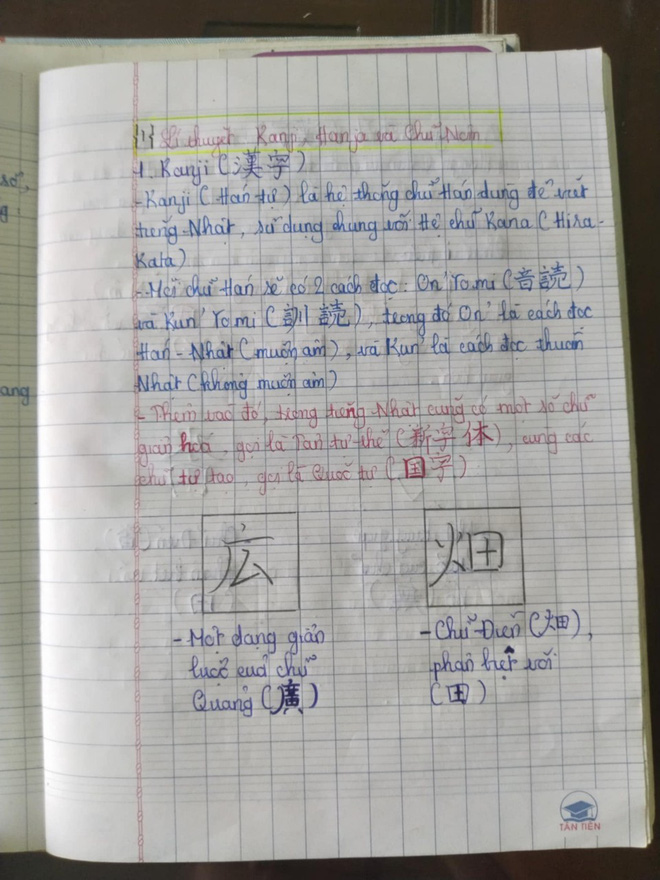 {1} Lí thuyết Kanji, Hanja và Chữ Nôm
1. Kanji (漢字)
- Kanji (Hán tự) là hệ thống chữ Hán dùng để viết
tiếng Nhật, sử dụng chung với Hệ chữ Kana (Hira-
Kata)
- Mỗi chữ Hán sẽ có 2 cách đọc: On'Yomi (音読)
và Kun'Yomi (訓読), trong đó On' là cách đọc
Hán-Nhật (mượn âm), và Kun' là cách đọc thuần
Nhật (không mượn âm)
- Thêm vào đó, trong tiếng Nhật cũng có một số chữ
giản hoá, gọi là Tân tự thể (新字体), cùng các
chữ tự tạo, gọi là Quốc tự (国字)
広 畑
- Một dạng giản
lược của chữ
Quảng (廣)
- Chữ Điền (畑),
phân biệt với
(田)
số,
g
ang
TÂN TIẾN